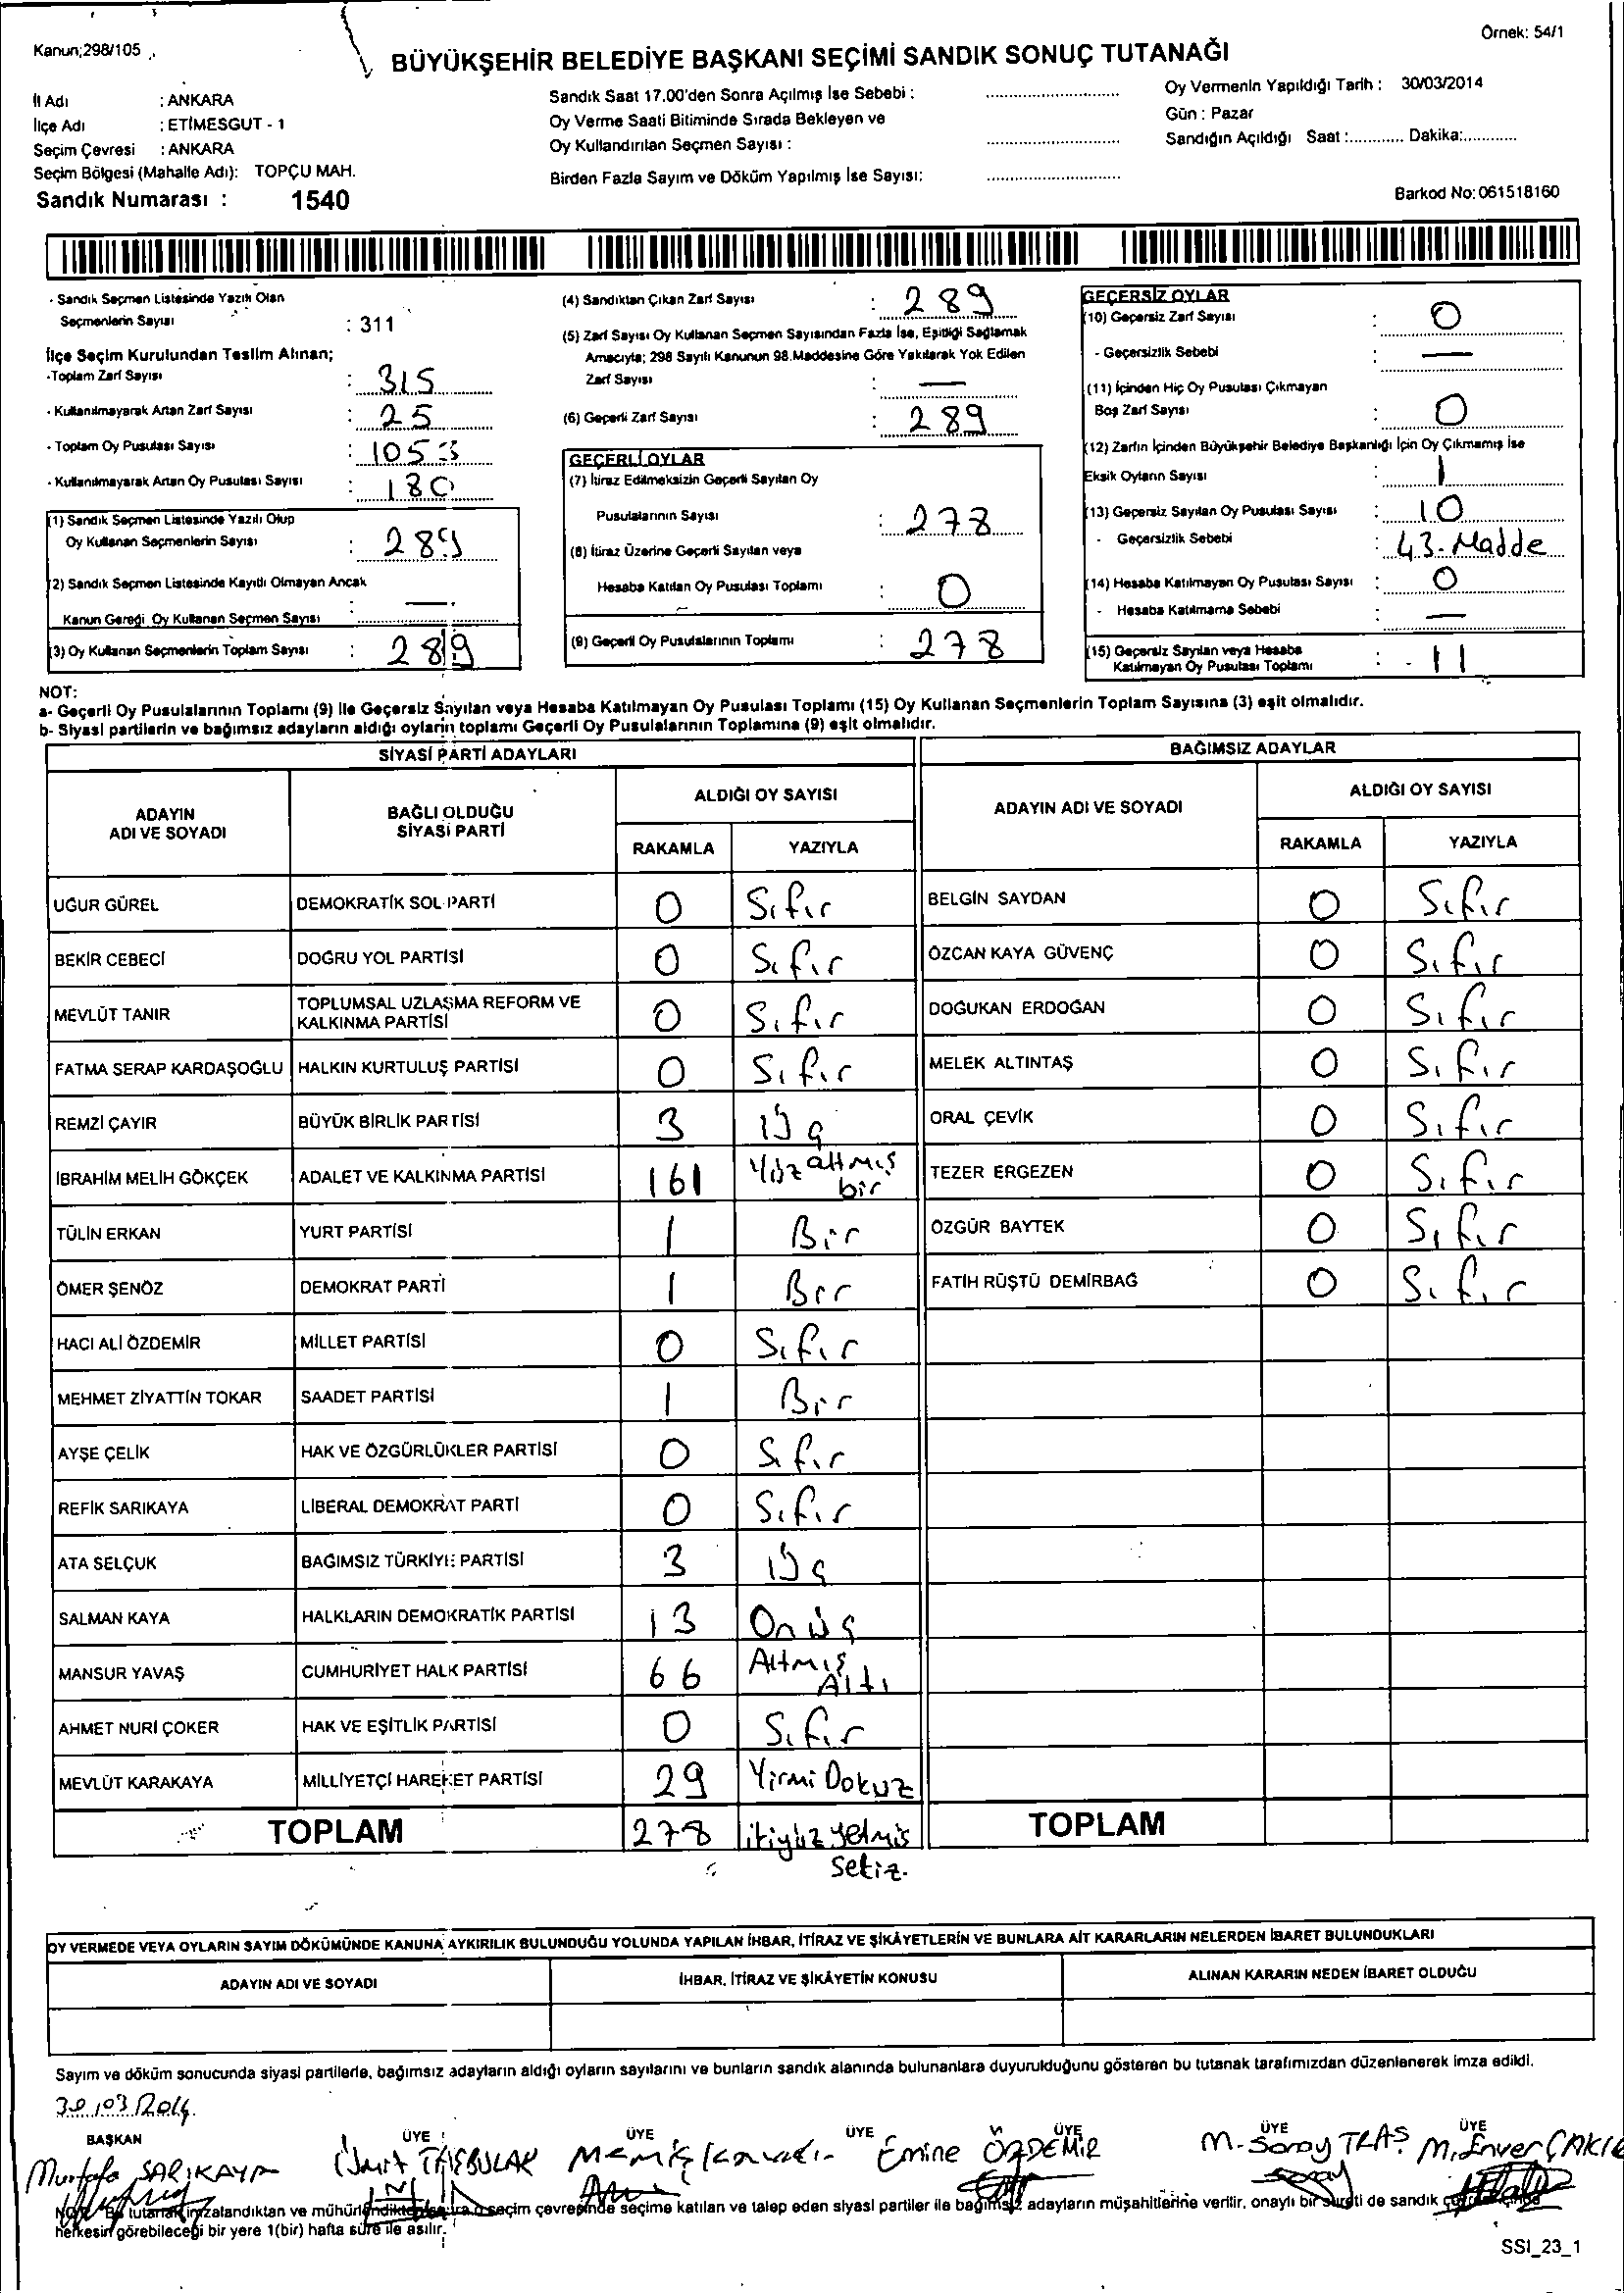 Kanun;298/105
Örnek: 54/1
BÜYÜKŞEHİR BELEDİYE BAŞKANI SEÇİMİ SANDIK SONUÇ TUTANAĞI
İl Adı : ANKARA
İlçe Adı : ETİMESGUT - 1
Seçim Çevresi : ANKARA
Seçim Bölgesi (Mahalle Adı): TOPÇU MAH.
Sandık Numarası : 1540
Sandık Saat 17.00'den Sonra Açılmış İse Sebebi :
Oy Verme Saati Bitiminde Sırada Bekleyen ve
Oy Kullandırılan Seçmen Sayısı :
Birden Fazla Sayım ve Döküm Yapılmış İse Sayısı:
Oy Vermenin Yapıldığı Tarih : 30/03/2014
Gün : Pazar
Sandığın Açıldığı Saat :............ Dakika:............
Barkod No: 061518160
- Sandık Seçmen Listesinde Yazılı Olan
Seçmenlerin Sayısı : 311
İlçe Seçim Kurulundan Teslim Alınan;
-Toplam Zarf Sayısı : 315
- Kullanılmayarak Artan Zarf Sayısı : 25
- Toplam Oy Pusulası Sayısı : 1053
- Kullanılmayarak Artan Oy Pusulası Sayısı : 180
(1) Sandık Seçmen Listesinde Yazılı Olup
Oy Kullanan Seçmenlerin Sayısı : 289
(2) Sandık Seçmen Listesinde Kayıtlı Olmayan Ancak
Kanun Gereği Oy Kullanan Seçmen Sayısı : —
(3) Oy Kullanan Seçmenlerin Toplam Sayısı : 289
(4) Sandıktan Çıkan Zarf Sayısı : 289
(5) Zarf Sayısı Oy Kullanan Seçmen Sayısından Fazla İse, Eşitliği Sağlamak
Amacıyla; 298 Sayılı Kanunun 98.Maddesine Göre Yakılarak Yok Edilen
Zarf Sayısı : —
(6) Geçerli Zarf Sayısı : 289
GEÇERLİ OYLAR
(7) İtiraz Edilmeksizin Geçerli Sayılan Oy
Pusulalarının Sayısı : 278
(8) İtiraz Üzerine Geçerli Sayılan veya
Hesaba Katılan Oy Pusulası Toplamı : 0
(9) Geçerli Oy Pusulalarının Toplamı : 278
GEÇERSİZ OYLAR
(10) Geçersiz Zarf Sayısı : 0
- Geçersizlik Sebebi : —
(11) İçinden Hiç Oy Pusulası Çıkmayan
Boş Zarf Sayısı : 0
(12) Zarfın İçinden Büyükşehir Belediye Başkanlığı İçin Oy Çıkmamış İse
Eksik Oyların Sayısı : 1
(13) Geçersiz Sayılan Oy Pusulası Sayısı : 10
- Geçersizlik Sebebi : 43. Madde
(14) Hesaba Katılmayan Oy Pusulası Sayısı : 0
- Hesaba Katılmama Sebebi : —
(15) Geçersiz Sayılan veya Hesaba
Katılmayan Oy Pusulası Toplamı : 11
NOT:
a- Geçerli Oy Pusulalarının Toplamı (9) ile Geçersiz Sayılan veya Hesaba Katılmayan Oy Pusulası Toplamı (15) Oy Kullanan Seçmenlerin Toplam Sayısına (3) eşit olmalıdır.
b- Siyasi partilerin ve bağımsız adayların aldığı oyların toplamı Geçerli Oy Pusulalarının Toplamına (9) eşit olmalıdır.
SİYASİ PARTİ ADAYLARI
ADAYIN ADI VE SOYADI
BAĞLI OLDUĞU SİYASİ PARTİ
ALDIĞI OY SAYISI
RAKAMLA YAZIYLA
UĞUR GÜREL DEMOKRATİK SOL PARTİ 0 Sıfır
BEKİR CEBECİ DOĞRU YOL PARTİSİ 0 Sıfır
MEVLÜT TANIR TOPLUMSAL UZLAŞMA REFORM VE KALKINMA PARTİSİ 0 Sıfır
FATMA SERAP KARDAŞOĞLU HALKIN KURTULUŞ PARTİSİ 0 Sıfır
REMZİ ÇAYIR BÜYÜK BİRLİK PARTİSİ 3 Üç
İBRAHİM MELİH GÖKÇEK ADALET VE KALKINMA PARTİSİ 161 Yüzaltmış bir
TÜLİN ERKAN YURT PARTİSİ 1 Bir
ÖMER ŞENÖZ DEMOKRAT PARTİ 1 Bir
HACI ALİ ÖZDEMİR MİLLET PARTİSİ 0 Sıfır
MEHMET ZİYATTİN TOKAR SAADET PARTİSİ 1 Bir
AYŞE ÇELİK HAK VE ÖZGÜRLÜKLER PARTİSİ 0 Sıfır
REFİK SARIKAYA LİBERAL DEMOKRAT PARTİ 0 Sıfır
ATA SELÇUK BAĞIMSIZ TÜRKİYE PARTİSİ 3 Üç
SALMAN KAYA HALKLARIN DEMOKRATİK PARTİSİ 13 On üç
MANSUR YAVAŞ CUMHURİYET HALK PARTİSİ 66 Altmış Altı
AHMET NURİ ÇOKER HAK VE EŞİTLİK PARTİSİ 0 Sıfır
MEVLÜT KARAKAYA MİLLİYETÇİ HAREKET PARTİSİ 29 Yirmi Dokuz
TOPLAM 278 ikiyüz yetmiş sekiz.
BAĞIMSIZ ADAYLAR
ADAYIN ADI VE SOYADI
ALDIĞI OY SAYISI
RAKAMLA YAZIYLA
BELGİN SAYDAN 0 Sıfır
ÖZCAN KAYA GÜVENÇ 0 Sıfır
DOĞUKAN ERDOĞAN 0 Sıfır
MELEK ALTINTAŞ 0 Sıfır
ORAL ÇEVİK 0 Sıfır
TEZER ERGEZEN 0 Sıfır
ÖZGÜR BAYTEK 0 Sıfır
FATİH RÜŞTÜ DEMİRBAĞ 0 Sıfır
TOPLAM
OY VERMEDE VEYA OYLARIN SAYIM DÖKÜMÜNDE KANUNA AYKIRILIK BULUNDUĞU YOLUNDA YAPILAN İHBAR, İTİRAZ VE ŞİKÂYETLERİN VE BUNLARA AİT KARARLARIN NELERDEN İBARET BULUNDUKLARI
ADAYIN ADI VE SOYADI
İHBAR, İTİRAZ VE ŞİKÂYETİN KONUSU
ALINAN KARARIN NEDEN İBARET OLDUĞU
Sayım ve döküm sonucunda siyasi partilerle, bağımsız adayların aldığı oyların sayılarını ve bunların sandık alanında bulunanlara duyurulduğunu gösteren bu tutanak tarafımızdan düzenlenerek imza edildi.
30/03/2014
BAŞKAN ÜYE ÜYE ÜYE ÜYE ÜYE ÜYE
Mustafa SARIKAYA Ümit Emine ÖZDEMİR M. Soray TLAŞ M. Enver
NOT: Bu tutanak imzalandıktan ve mühürlendikten sonra o seçim çevresinde seçime katılan ve talep eden siyasi partiler ile bağımsız adayların müşahitlerine verilir, onaylı bir sureti de sandık çevresinde
herkesin görebileceği bir yere 1(bir) hafta süre ile asılır.
SSI_23_1